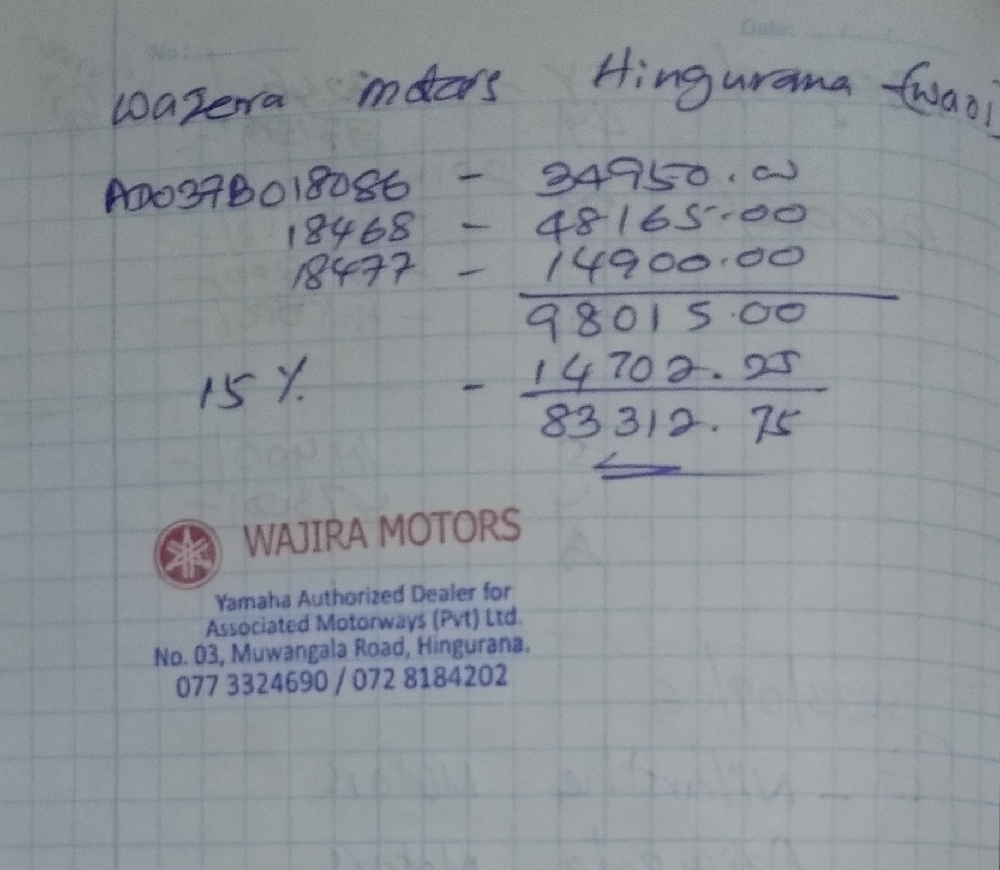 No:
Date:
Wazerra motors Hingurana -(Wa01)
AD037B018086 - 34950.00
18468 - 48165.00
18477 - 14900.00
98015.00
15% - 14702.25
83312.75
WAJIRA MOTORS
Yamaha Authorized Dealer for
Associated Motorways (Pvt) Ltd.
No. 03, Muwangala Road, Hingurana.
077 3324690 / 072 8184202